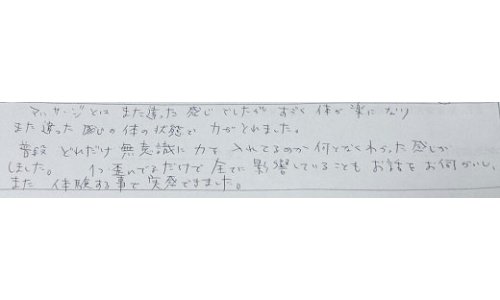 マッサージとはまた違った感じでしたがすごく体が楽になり
また違った感じの体の状態で力がとれました。
普段どれだけ無意識に力を入れてるのか何となくわかった感じが
しました。1つ歪んでるだけで全てに影響していることもお話をお伺いし、
また体験する事で実感できました。